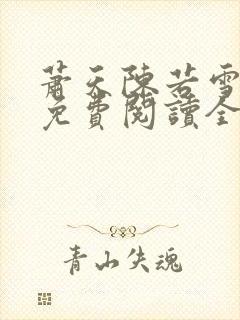 蕭天陳若雪
免費閱讀全
青山失魂